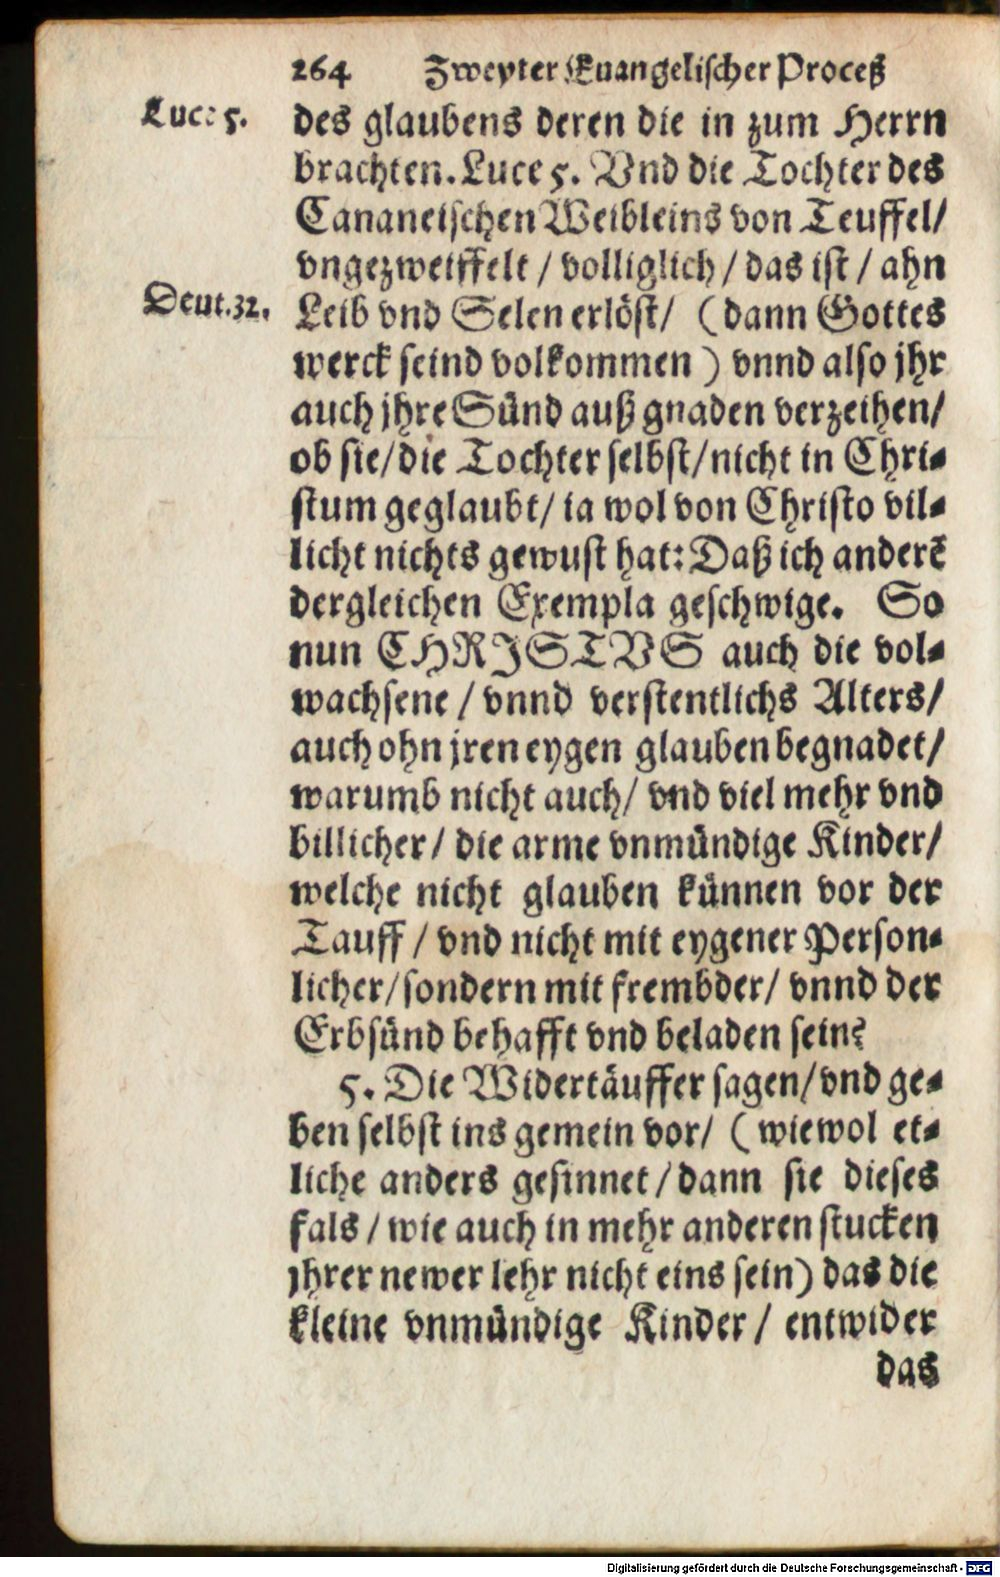 264 Zweyter Euangelischer Proceß
Luce 5.
des glaubens deren die in zum Herrn
brachten. Luce 5. Vnd die Tochter des
Cananeischen Weibleins von Teuffel/
vngezweiffelt / volliglich / das ist / ahn
Deut. 32.
Leib vnd Selen erlöst/ (dann Gottes
werck seind volkommen) vnnd also jhr
auch jhre Sünd auß gnaden verzeihen/
ob sie/die Tochter selbst/nicht in Chri-
stum geglaubt/ ia wol von Christo vil-
licht nichts gewust hat: Daß ich anderẽ
dergleichen Exempla geschwige. So
nun CHRISTVS auch die vol-
wachsene / vnnd verstentlichs Alters/
auch ohn jren eygen glauben begnadet/
warumb nicht auch/ vnd viel mehr vnd
billicher/ die arme vnmündige Kinder/
welche nicht glauben künnen vor der
Tauff / vnd nicht mit eygener Person-
licher/sondern mit frembder/ vnnd der
Erbsünd behafft vnd beladen sein?
5. Die Widertäuffer sagen/vnd ge-
ben selbst ins gemein vor/ (wiewol et-
liche anders gesinnet / dann sie dieses
fals / wie auch in mehr anderen stucken
jhrer newer lehr nicht eins sein) das die
kleine vnmündige Kinder / entwider
das
Digitalisierung gefördert durch die Deutsche Forschungsgemeinschaft - DFG